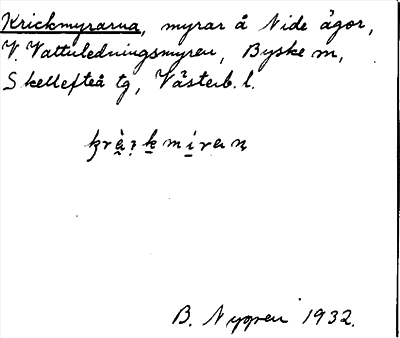 Krickmyrarna, myrar å Nide ägor,
V. Vattuledningsmyren, Byske m,
Skellefteå tg, Västerb. l.
B. Nygren 1932.